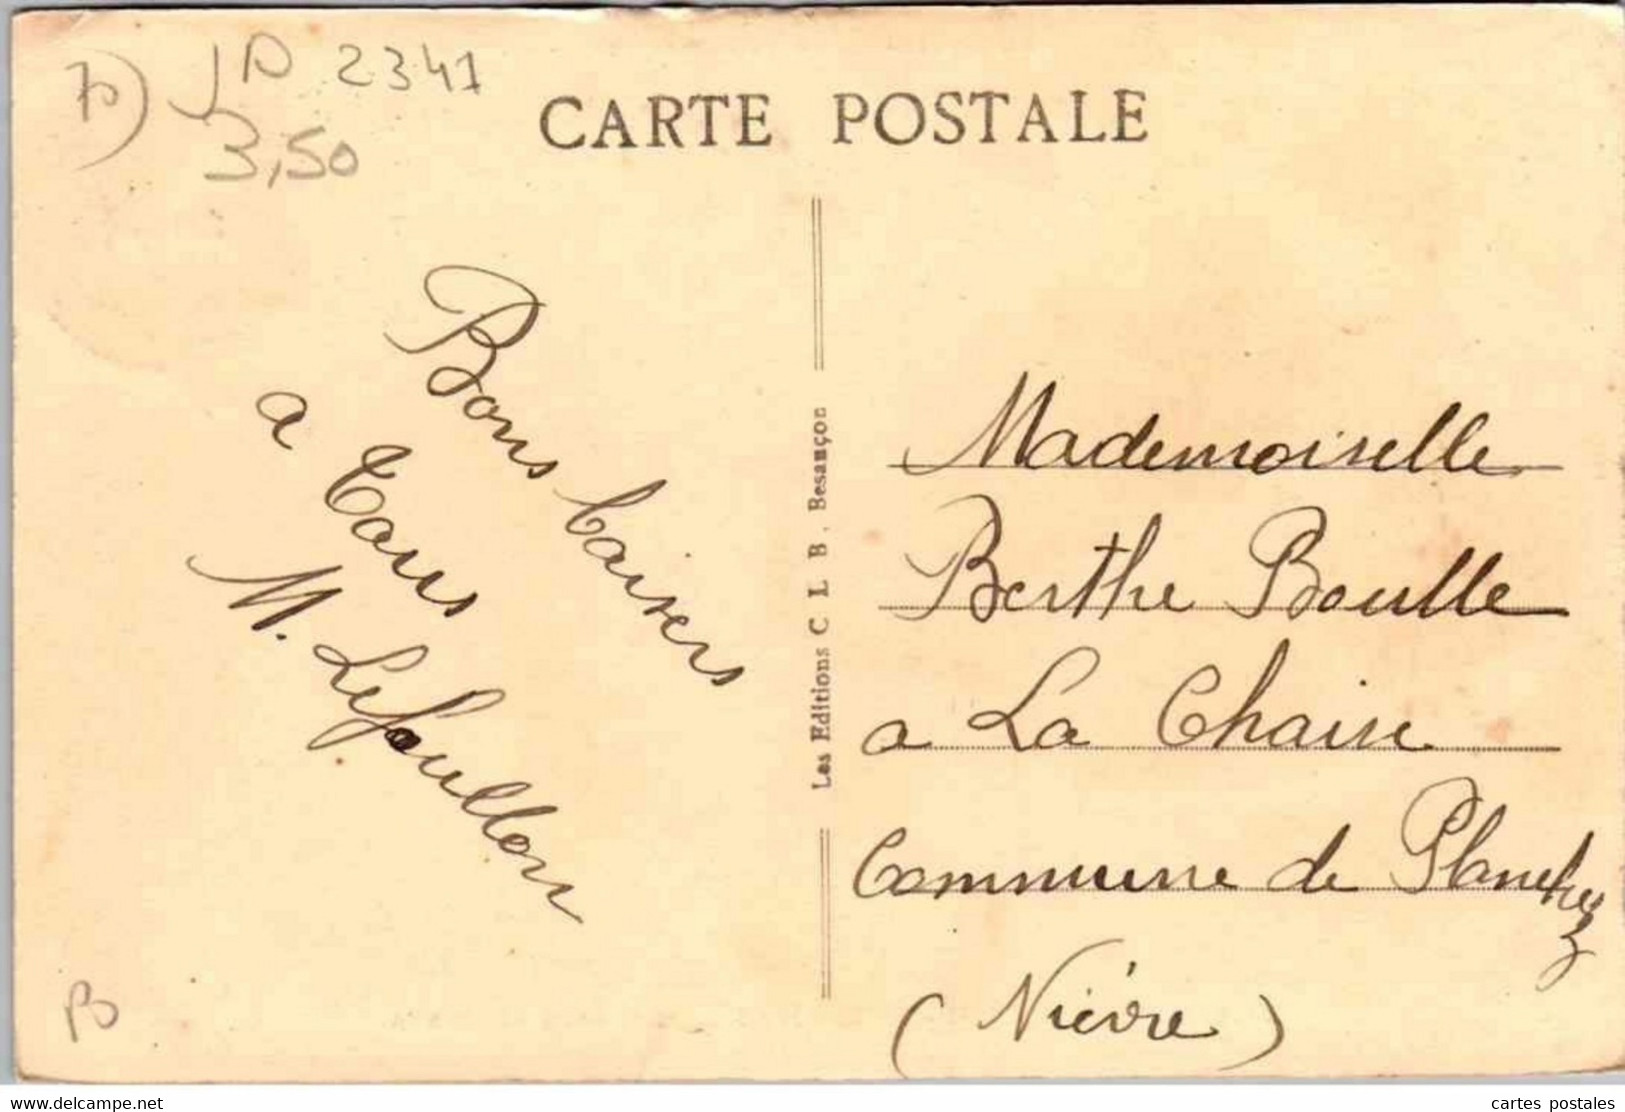 70) JP 2341
3,50
CARTE POSTALE
Bons baisers
a Tous
M. Lefoullon
Les Editions C L B, Besançon
Mademoiselle
Berthe Boulle
a La Chaise
Commune de Planchez
(Nièvre)
B
www.delcampe.net
cartes postales